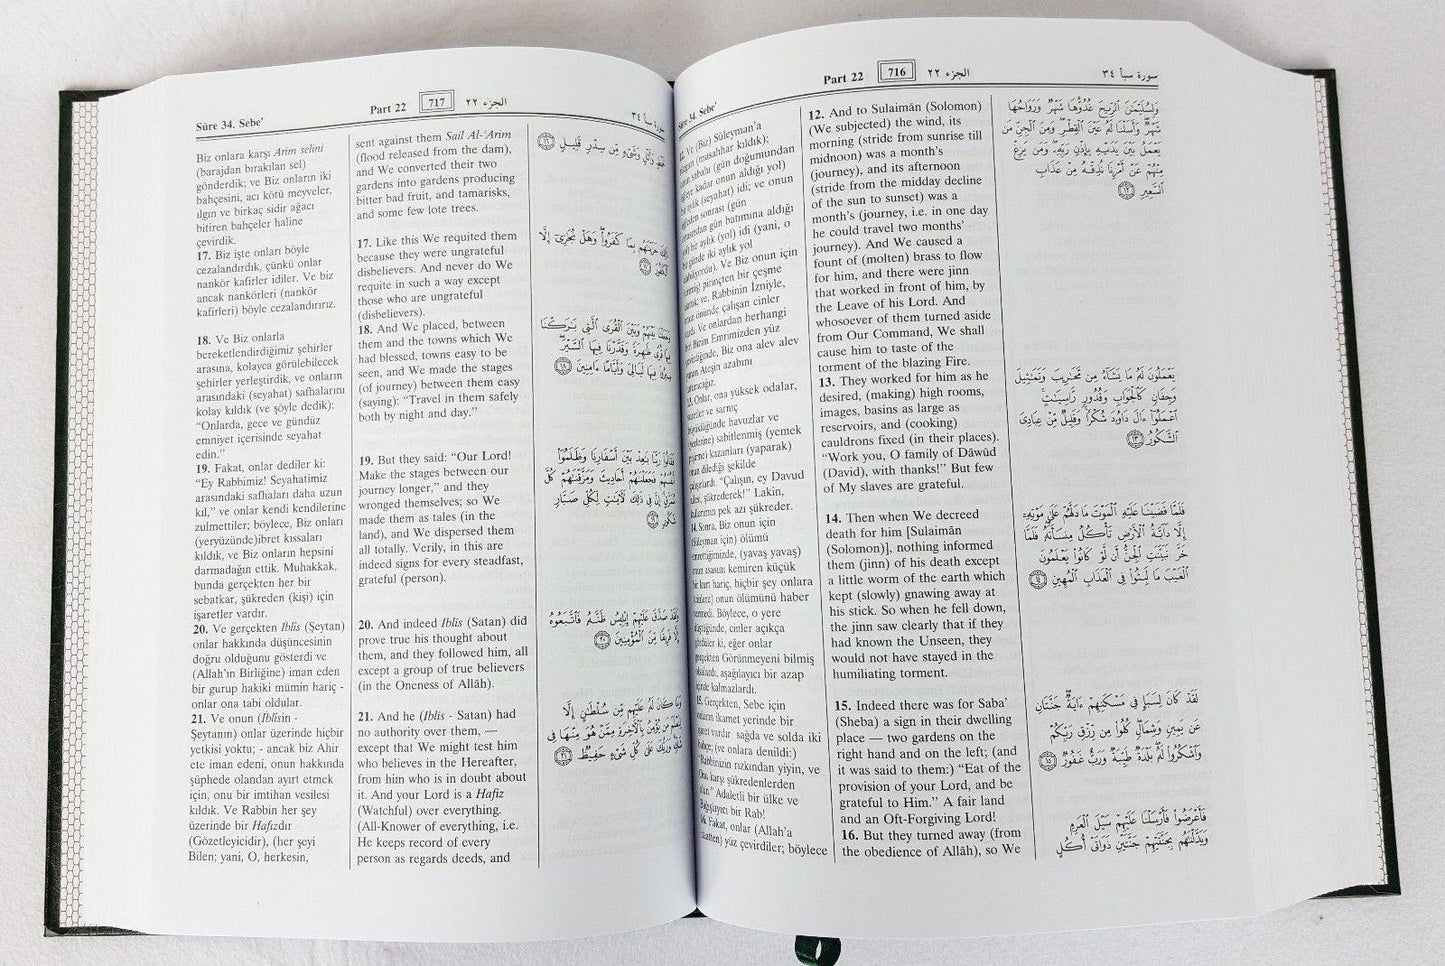 Part 22 716 الجزء ٢٢ سورة سبأ ٣٤
Sûre 34. Sebe'
Ve (Biz) Süleyman'a
(musahhar kıldık);
sabahı (gün doğumundan
kadar onun aldığı yol)
aylık (seyahat) idi; ve onun
sonrası (gün
gün batımına aldığı
bir aylık (yol) idi (yani, o
günde iki aylık yol
Ve Biz onun için
pirinçten bir çeşme
ve, Rabbinin İzniyle,
önünde çalışan cinler
Ve onlardan herhangi
Bizim Emrimizden yüz
Biz ona alev alev
Ateşin azabını
Onlar, ona yüksek odalar,
ve sarnıç
havuzlar ve
sabitlenmiş (yemek
kazanları (yaparak)
dilediği şekilde
“Çalışın, ey Davud
şükrederek!” Lakin,
pek azı şükreder.
14. Sonra, Biz onun için
(Süleyman için) ölümü
(yavaş yavaş)
asasını kemiren küçük
kurt hariç, hiçbir şey onlara
onun ölümünü haber
Böylece, o yere
cinler açıkça
ki, eğer onlar
gerçekten Görünmeyeni bilmiş
aşağılayıcı bir azap
içinde kalmazlardı.
15. Gerçekten, Sebe için
ikamet yerinde bir
vardır sağda ve solda iki
(ve onlara denildi:)
“Rabbinizin rızkından yiyin, ve
Ona karşı şükredenlerden
Adaletli bir ülke ve
Bağışlayıcı bir Rab!
16. Fakat, onlar (Allah'a
yüz çevirdiler; böylece
12. And to Sulaimân (Solomon)
(We subjected) the wind, its
morning (stride from sunrise till
midnoon) was a month's
(journey), and its afternoon
(stride from the midday decline
of the sun to sunset) was a
month's (journey, i.e. in one day
he could travel two months'
journey). And We caused a
fount of (molten) brass to flow
for him, and there were jinn
that worked in front of him, by
the Leave of his Lord. And
whosoever of them turned aside
from Our Command, We shall
cause him to taste of the
torment of the blazing Fire.
13. They worked for him as he
desired, (making) high rooms,
images, basins as large as
reservoirs, and (cooking)
cauldrons fixed (in their places).
“Work you, O family of Dâwûd
(David), with thanks!” But few
of My slaves are grateful.
14. Then when We decreed
death for him [Sulaimân
(Solomon)], nothing informed
them (jinn) of his death except
a little worm of the earth which
kept (slowly) gnawing away at
his stick. So when he fell down,
the jinn saw clearly that if they
had known the Unseen, they
would not have stayed in the
humiliating torment.
15. Indeed there was for Saba'
(Sheba) a sign in their dwelling
place — two gardens on the
right hand and on the left; (and
it was said to them:) “Eat of the
provision of your Lord, and be
grateful to Him.” A fair land
and an Oft-Forgiving Lord!
16. But they turned away (from
the obedience of Allâh), so We
وَلِسُلَيْمَٰنَ ٱلرِّيحَ غُدُوُّهَا شَهْرٌ وَرَوَاحُهَا
شَهْرٌ وَأَسَلْنَا لَهُ عَيْنَ ٱلْقِطْرِ وَمِنَ ٱلْجِنِّ مَن
يَعْمَلُ بَيْنَ يَدَيْهِ بِإِذْنِ رَبِّهِۦ وَمَن يَزِغْ
مِنْهُمْ عَنْ أَمْرِنَا نُذِقْهُ مِنْ عَذَابِ
ٱلسَّعِيرِ ١٢
يَعْمَلُونَ لَهُۥ مَا يَشَآءُ مِن مَّحَٰرِيبَ وَتَمَٰثِيلَ
وَجِفَانٍ كَٱلْجَوَابِ وَقُدُورٍ رَّاسِيَٰتٍ
ٱعْمَلُوٓا۟ ءَالَ دَاوُۥدَ شُكْرًا وَقَلِيلٌ مِّنْ عِبَادِىَ
ٱلشَّكُورُ ١٣
فَلَمَّا قَضَيْنَا عَلَيْهِ ٱلْمَوْتَ مَا دَلَّهُمْ عَلَىٰ مَوْتِهِۦٓ
إِلَّا دَآبَّةُ ٱلْأَرْضِ تَأْكُلُ مِنسَأَتَهُۥ فَلَمَّا
خَرَّ تَبَيَّنَتِ ٱلْجِنُّ أَن لَّوْ كَانُوا۟ يَعْلَمُونَ
ٱلْغَيْبَ مَا لَبِثُوا۟ فِى ٱلْعَذَابِ ٱلْمُهِينِ ١٤
لَقَدْ كَانَ لِسَبَإٍ فِى مَسْكَنِهِمْ ءَايَةٌ جَنَّتَانِ
عَن يَمِينٍ وَشِمَالٍ كُلُوا۟ مِن رِّزْقِ رَبِّكُمْ
وَٱشْكُرُوا۟ لَهُۥ بَلْدَةٌ طَيِّبَةٌ وَرَبٌّ غَفُورٌ ١٥
فَأَعْرَضُوا۟ فَأَرْسَلْنَا عَلَيْهِمْ سَيْلَ ٱلْعَرِمِ
وَبَدَّلْنَٰهُم بِجَنَّتَيْهِمْ جَنَّتَيْنِ ذَوَاتَىْ أُكُلٍ
Sûre 34. Sebe' Part 22 717 الجزء ٢٢ سورة سبأ ٣٤
Biz onlara karşı Arim selini
(barajdan bırakılan sel)
gönderdik; ve Biz onların iki
bahçesini, acı kötü meyveler,
ılgın ve birkaç sidir ağacı
bitiren bahçeler haline
çevirdik.
17. Biz işte onları böyle
cezalandırdık, çünkü onlar
nankör kafirler idiler. Ve biz
ancak nankörleri (nankör
kafirleri) böyle cezalandırırız.
18. Ve Biz onlarla
bereketlendirdiğimiz şehirler
arasına, kolayca görülebilecek
şehirler yerleştirdik, ve onların
arasındaki (seyahat) safhalarını
kolay kıldık (ve şöyle dedik):
“Onlarda, gece ve gündüz
emniyet içerisinde seyahat
edin.”
19. Fakat, onlar dediler ki:
“Ey Rabbimiz! Seyahatimiz
arasındaki safhaları daha uzun
kıl,” ve onlar kendi kendilerine
zulmettiler; böylece, Biz onları
(yeryüzünde)ibret kıssaları
kıldık, ve Biz onların hepsini
darmadağın ettik. Muhakkak,
bunda gerçekten her bir
sebatkar, şükreden (kişi) için
işaretler vardır.
20. Ve gerçekten Iblîs (Şeytan)
onlar hakkında düşüncesinin
doğru olduğunu gösterdi ve
(Allah'ın Birliğine) iman eden
bir gurup hakiki mümin hariç -
onlar ona tabi oldular.
21. Ve onun (Iblîsin -
Şeytanın) onlar üzerinde hiçbir
yetkisi yoktu; - ancak biz Ahir
ete iman edeni, onun hakkında
şüphede olandan ayırt etmek
için, onu bir imtihan vesilesi
kıldık. Ve Rabbin her şey
üzerinde bir Hafızdır
(Gözetleyicidir), (her şeyi
Bilen; yani, O, herkesin,
sent against them Sail Al-'Arim
(flood released from the dam),
and We converted their two
gardens into gardens producing
bitter bad fruit, and tamarisks,
and some few lote trees.
17. Like this We requited them
because they were ungrateful
disbelievers. And never do We
requite in such a way except
those who are ungrateful
(disbelievers).
18. And We placed, between
them and the towns which We
had blessed, towns easy to be
seen, and We made the stages
(of journey) between them easy
(saying): “Travel in them safely
both by night and day.”
19. But they said: “Our Lord!
Make the stages between our
journey longer,” and they
wronged themselves; so We
made them as tales (in the
land), and We dispersed them
all totally. Verily, in this are
indeed signs for every steadfast,
grateful (person).
20. And indeed Iblîs (Satan) did
prove true his thought about
them, and they followed him, all
except a group of true believers
(in the Oneness of Allâh).
21. And he (Iblîs - Satan) had
no authority over them, —
except that We might test him
who believes in the Hereafter,
from him who is in doubt about
it. And your Lord is a Hafîz
(Watchful) over everything.
(All-Knower of everything, i.e.
He keeps record of every
person as regards deeds, and
خَمْطٍ وَأَثْلٍ وَشَىْءٍ مِّن سِدْرٍ قَلِيلٍ ١٦
ذَٰلِكَ جَزَيْنَٰهُم بِمَا كَفَرُوا۟ وَهَلْ نُجَٰزِىٓ إِلَّا
ٱلْكَفُورَ ١٧
وَجَعَلْنَا بَيْنَهُمْ وَبَيْنَ ٱلْقُرَى ٱلَّتِى بَٰرَكْنَا
فِيهَا قُرًى ظَٰهِرَةً وَقَدَّرْنَا فِيهَا ٱلسَّيْرَ
سِيرُوا۟ فِيهَا لَيَالِىَ وَأَيَّامًا ءَامِنِينَ ١٨
فَقَالُوا۟ رَبَّنَا بَٰعِدْ بَيْنَ أَسْفَارِنَا وَظَلَمُوٓا۟
أَنفُسَهُمْ فَجَعَلْنَٰهُمْ أَحَادِيثَ وَمَزَّقْنَٰهُمْ كُلَّ
مُمَزَّقٍ إِنَّ فِى ذَٰلِكَ لَءَايَٰتٍ لِّكُلِّ صَبَّارٍ
شَكُورٍ ١٩
وَلَقَدْ صَدَّقَ عَلَيْهِمْ إِبْلِيسُ ظَنَّهُۥ فَٱتَّبَعُوهُ
إِلَّا فَرِيقًا مِّنَ ٱلْمُؤْمِنِينَ ٢٠
وَمَا كَانَ لَهُۥ عَلَيْهِم مِّن سُلْطَٰنٍ إِلَّا
لِنَعْلَمَ مَن يُؤْمِنُ بِٱلْءَاخِرَةِ مِمَّنْ هُوَ مِنْهَا فِى
شَكٍّ وَرَبُّكَ عَلَىٰ كُلِّ شَىْءٍ حَفِيظٌ ٢١